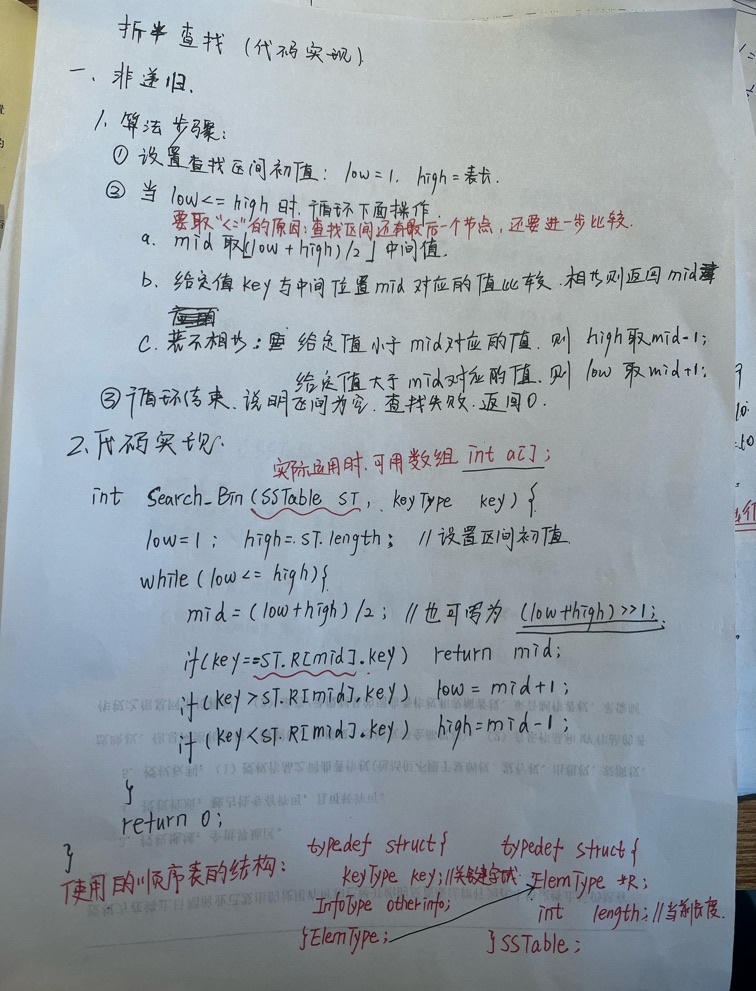 折半查找（代码实现）
一、非递归.
1. 算法步骤：
① 设置查找区间初值：low=1. high=表长.
② 当 low<=high 时，循环下面操作.
要取“<=”的原因：查找区间还有最后一个节点，还要进一步比较.
a. mid 取⌊(low+high)/2⌋中间值.
b. 给定值 key 与中间位置 mid 对应的值比较. 相等则返回 mid
c. 若不相等：给定值小于 mid 对应的值，则 high 取 mid-1;
给定值大于 mid 对应的值，则 low 取 mid+1;
③ 循环结束，说明区间为空，查找失败，返回0.
2. 代码实现:
实际运用时，可用数组 int a[];
int Search_Bin (SSTable ST, KeyType key) {
low=1; high=ST.length; //设置区间初值
while (low<=high){
mid=(low+high)/2; //也可写为 (low+high)>>1;
if(key==ST.R[mid].key) return mid;
if(key>ST.R[mid].key) low=mid+1;
if(key<ST.R[mid].key) high=mid-1;
}
return 0;
}
使用的顺序表的结构：
typedef struct{
KeyType key; //关键字域
InfoType otherinfo;
}ElemType;
typedef struct{
ElemType *R;
int length; //当前长度.
}SSTable;